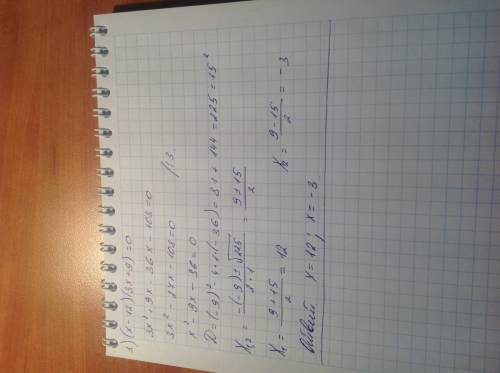 3) (x-12)(3x+9)=0
3x²+9x-36x-108=0
3x²-27x-108=0 /:3
x²-9x-36=0
D=(-9)²-4·1·(-36)=81+144=225=15²
x₁,₂ = -(-9)±√225 / 2·1 = 9±15 / 2
x₁ = 9+15 / 2 = 12 x₂ = 9-15 / 2 = -3
x=12; x=-3